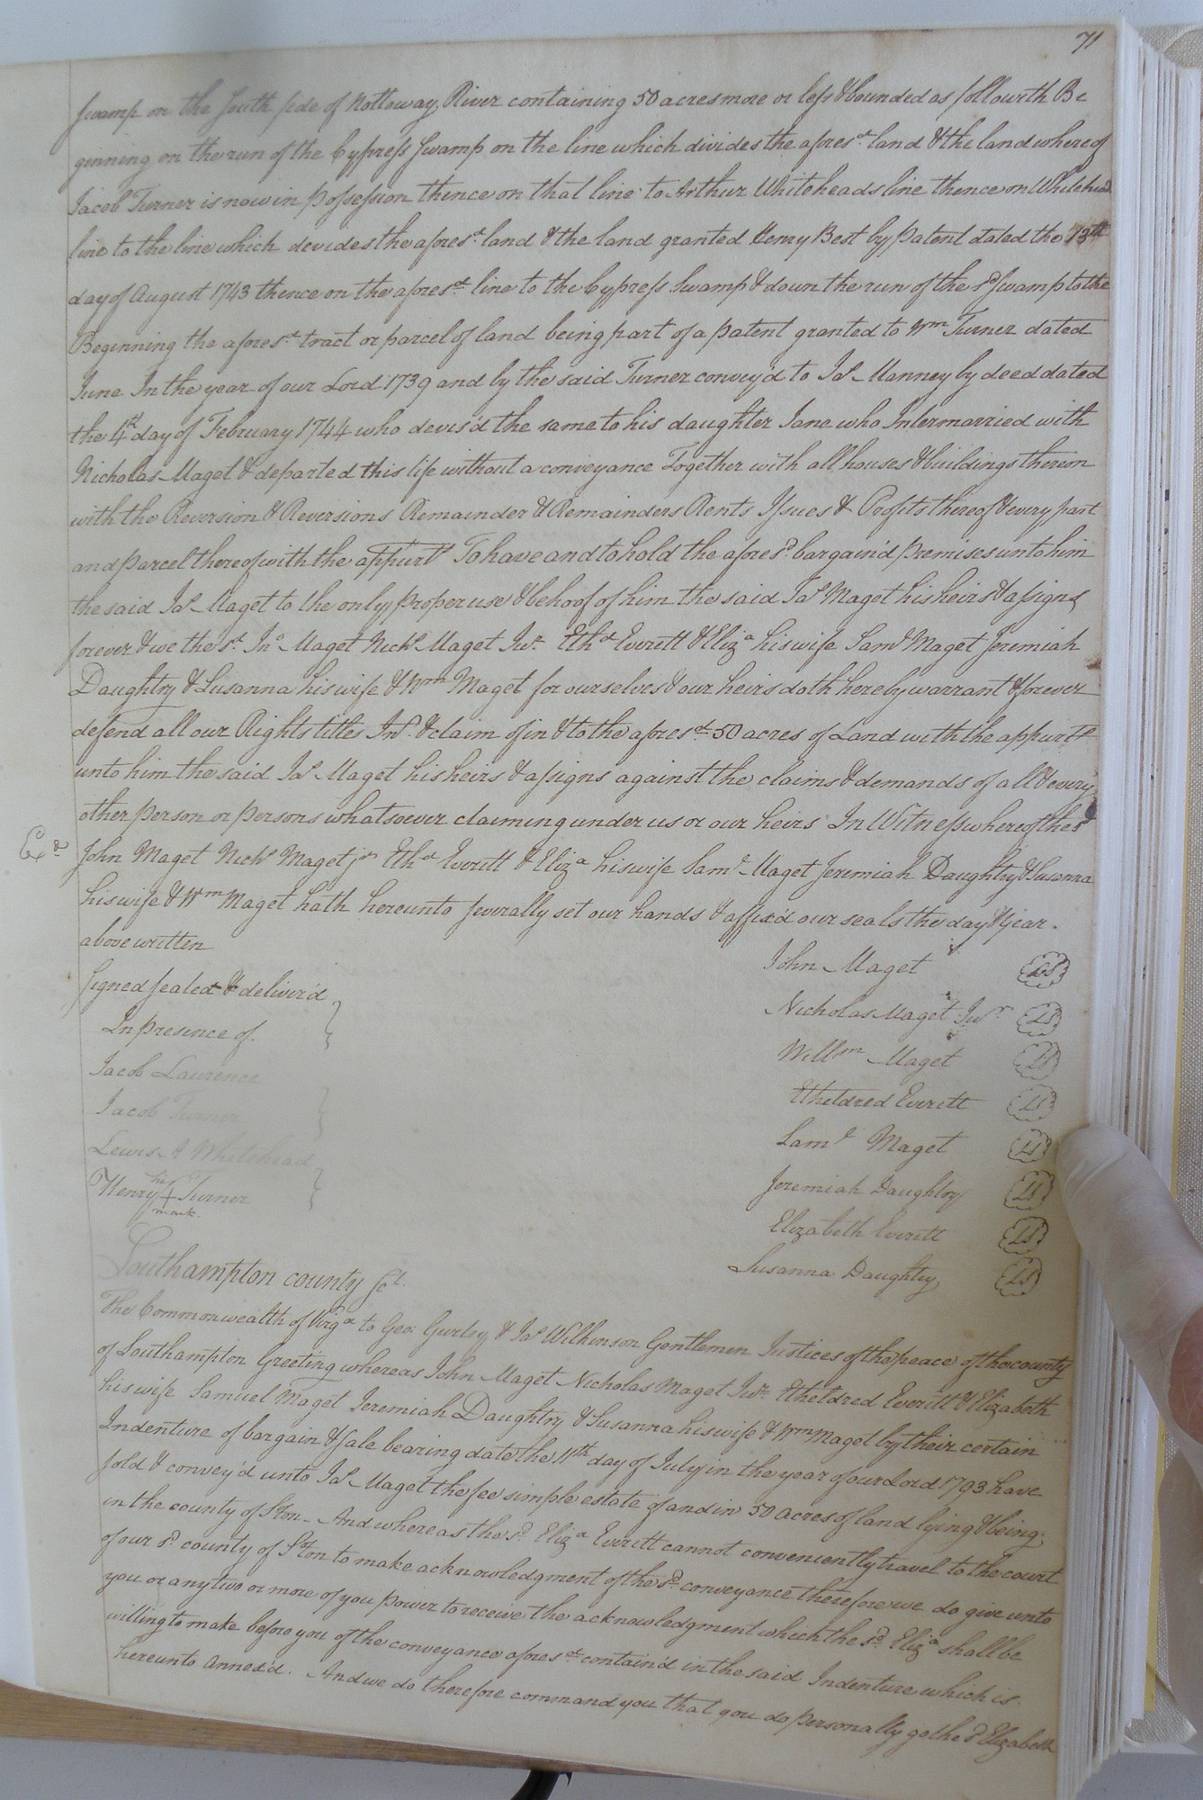 71
Swamp on the South side of Nottoway River containing 50 acres more or less & bounded as followith Be
ginning on the run of the Cypress Swamp on the line which divides the afores.d land & the land whereof
Jacob Turner is now in possession thence on that line to Arthur Whiteheads line thence on Whitehead
line to the line which devides the afores.d land & the land granted Henry Best by patent dated the
day of August 1743 thence on the afores.d line to the Cypress Swamp & down the run of the s.d Swamp to the
Beginning the afores.d tract or parcel of land being part of a patent granted to Wm Turner dated
June In the year of our Lord 1739 and by the said Turner convey'd to Ja.s Manney by deed dated
the 4th day of February 1744 who devis'd the same to his daughter Jane who Intermarried with
Nicholas Maget & departed this life without a conveyance Together with all houses & buildings thereon
with the Reversion & Reversions Remainder & Remainders Rents Issues & Profits thereof & every part
and parcel thereof with the appurts To have and to hold the afores.d bargain'd premises unto him
the said Ja.s Maget to the only proper use & behoof of him the said Ja.s Maget his heirs & assigns
forever & we the s.d Jn.o Maget Nich.s Maget Jun.r Eth.d Everett & Eliz.a his wife Sam.l Maget Jeremiah
Daughtry & Susanna his wife & Wm Maget for ourselves & our heirs doth hereby warrant & forever
defend all our Rights titles Int. & claim of in & to the afores.d 50 acres of Land with the appurts
unto him the said Ja.s Maget his heirs & assigns against the claims & demands of all & every
other person or persons whatsoever claiming under us or our heirs In Witness whereof the s.d
Ex.d
John Maget Nich.s Maget jun Eth.d Everett & Eliz.a his wife Sam.l Maget Jeremiah Daughtry & Susanna
his wife & Wm Maget hath hereunto severally set our hands & affix'd our seals the day & year.
above written
Signed sealed & deliver'd
In presence of.
Jacob Laurence
Jacob Turner
Lewis A Whitehead
Henry his + mark Turner
John Maget LS
Nicholas Maget Jun.r LS
Willm Maget LS
Etheldred Everett LS
Sam.l Maget LS
Jeremiah Daughtry LS
Elizabeth Everett LS
Susanna Daughtry LS
Southampton county Sct.
The Commonwealth of Virg.a to Geo. Gurley & Ja.s Wilkinson Gentlemen Justices of the peace of the county
of Southampton Greeting whereas John Maget Nicholas Maget Jun.r Etheldred Everitt & Elizabeth
his wife Samuel Maget Jeremiah Daughtry & Susanna his wife & Wm Maget by their certain
Indenture of bargain & sale bearing date the 11th day of July in the year of our Lord 1793 have
sold & convey'd unto Ja.s Maget the fee simple estate of and in 50 acres of land lying & being
in the county of S.ton. And whereas the s.d Eliz.a Everitt cannot conveniently travel to the court
of our s.d county of S.ton to make acknowledgment of the s.d conveyance therefore we do give unto
you or any two or more of you power to receive the acknowledgment which the s.d Eliz.a shall be
willing to make before you of the conveyance afores.d contain'd in the said Indenture which is
hereunto annex'd. And we do therefore command you that you do personally go the s.d Elizabeth